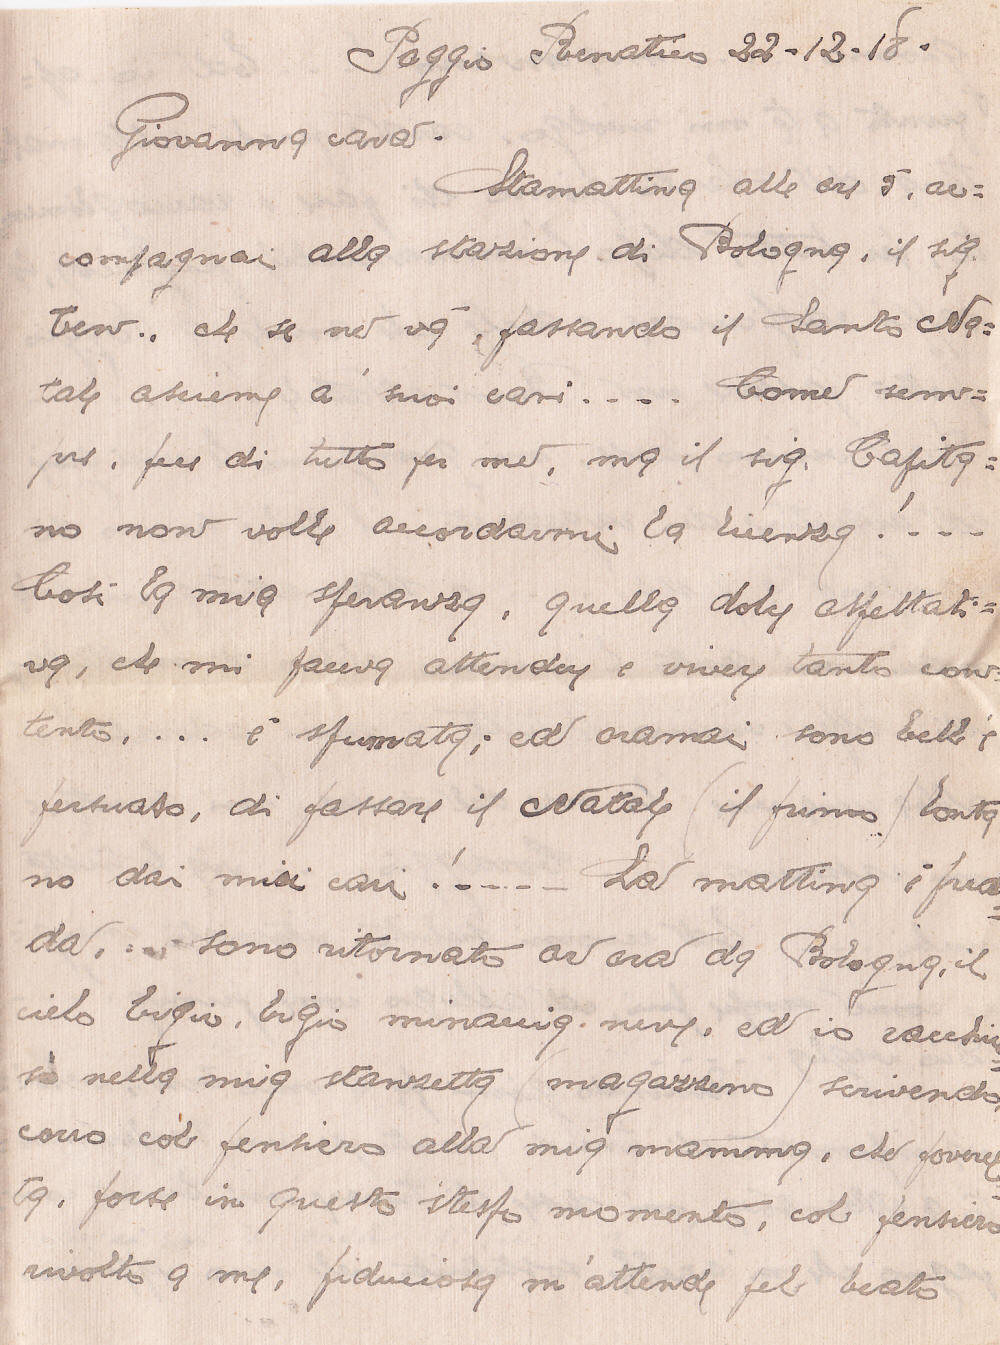 Poggio Renatico 22-12-18.
Giovanna cara.
Stamattina alle ore 5, ac=
compagnai alla stazione di Bologna, il sig.
Ten.., che se ne va, passando il Santo Na=
tale assieme a' suoi cari.... Come sem=
pre, fece di tutto per me, ma il sig. Capita=
no non volle accordarmi la licenza!...
Così la mia speranza, quella dolce aspettati=
va, che mi faceva attendere e vivere tanto con=
tento,... è sfumata; ed oramai sono bell'e
persuaso, di passare il Natale (il primo) lonta
no dai miei cari!..... La mattina è fred=
da,... sono ritornato or ora da Bologna, il
cielo bigio, bigio minaccia neve, ed io racchiu=
so nella mia stanzetta (magazzeno) scrivendo,
corro col pensiero alla mia mamma, che poveret=
ta, forse in questo stesso momento, col pensiero
rivolto a me, fiduciosa m'attende pel beato